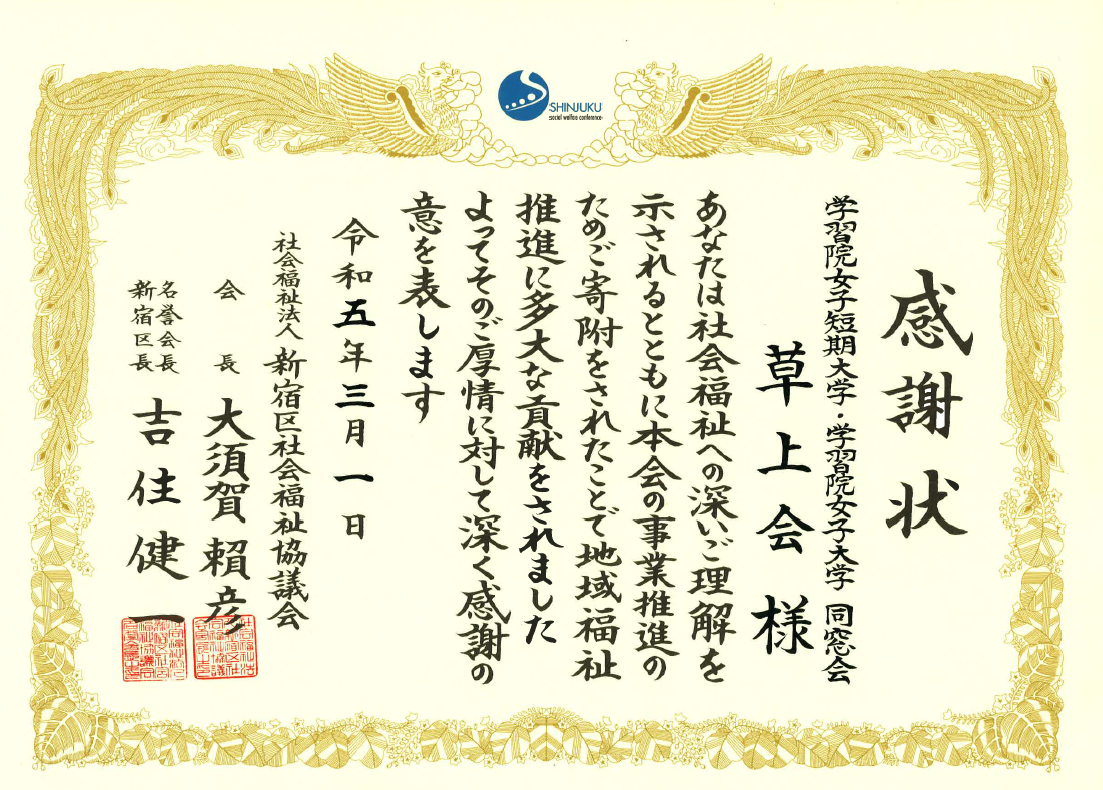 SHINJUKU
social welfare conference
感謝状
学習院女子短期大学・学習院女子大学 同窓会
草上会様
あなたは社会福祉への深いご理解を
示されるとともに本会の事業推進の
ためご寄附をされたことで地域福祉
推進に多大な貢献をされました
よってそのご厚情に対して深く感謝の
意を表します
令和五年三月一日
社会福祉法人 新宿区社会福祉協議会
会長 大須賀 頼彦
名誉会長
新宿区長 吉住健一